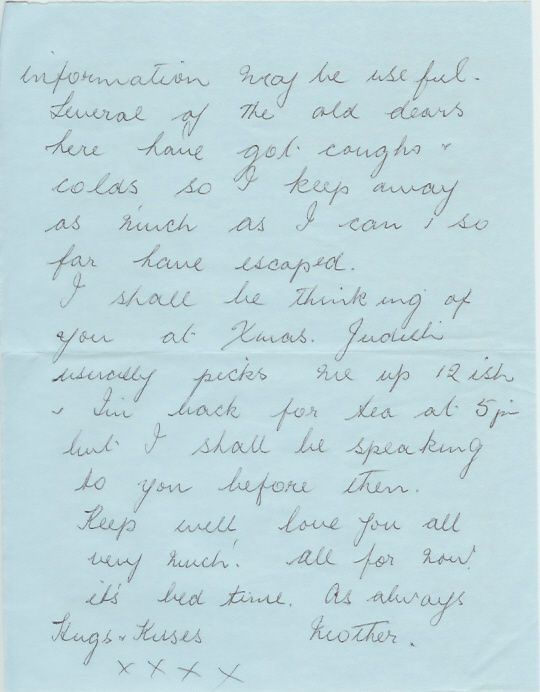 information may be useful.
Several of the old dears
here have got coughs &
colds so I keep away
as much as I can & so
far have escaped.
I shall be thinking of
you at Xmas. Judith
usually picks me up 12 ish
& I'm back for tea at 5pm
but I shall be speaking
to you before then.
Keep well love you all
very much! all for now!
it's bed time. As always
Hugs & Kisses Mother.
x x x x